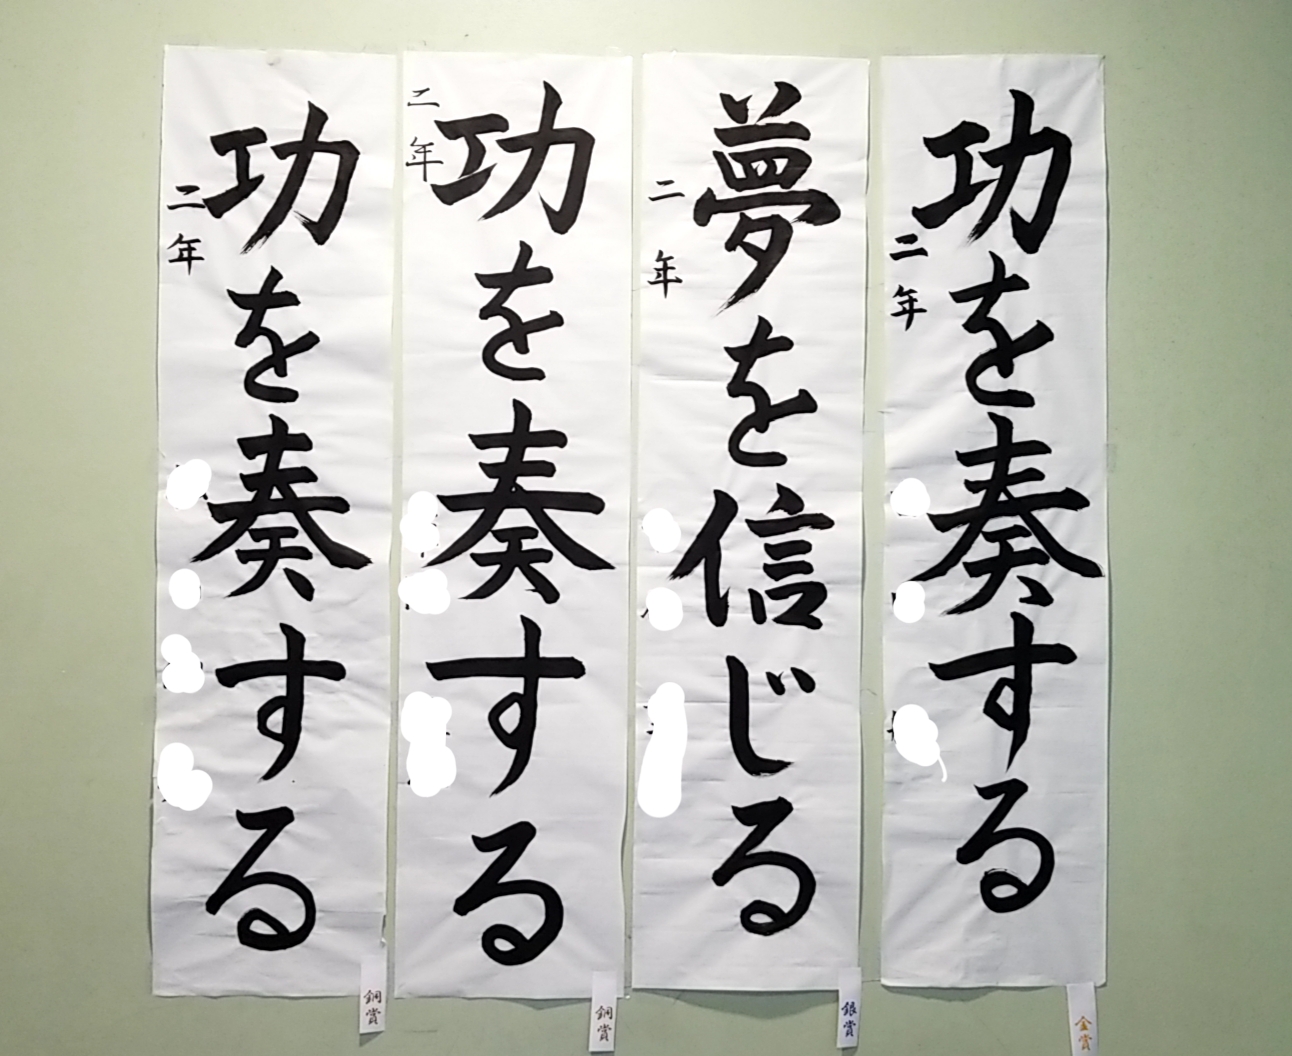 功を奏する
二年
金賞
夢を信じる
二年
銀賞
功を奏する
二年
銅賞
功を奏する
二年
銅賞